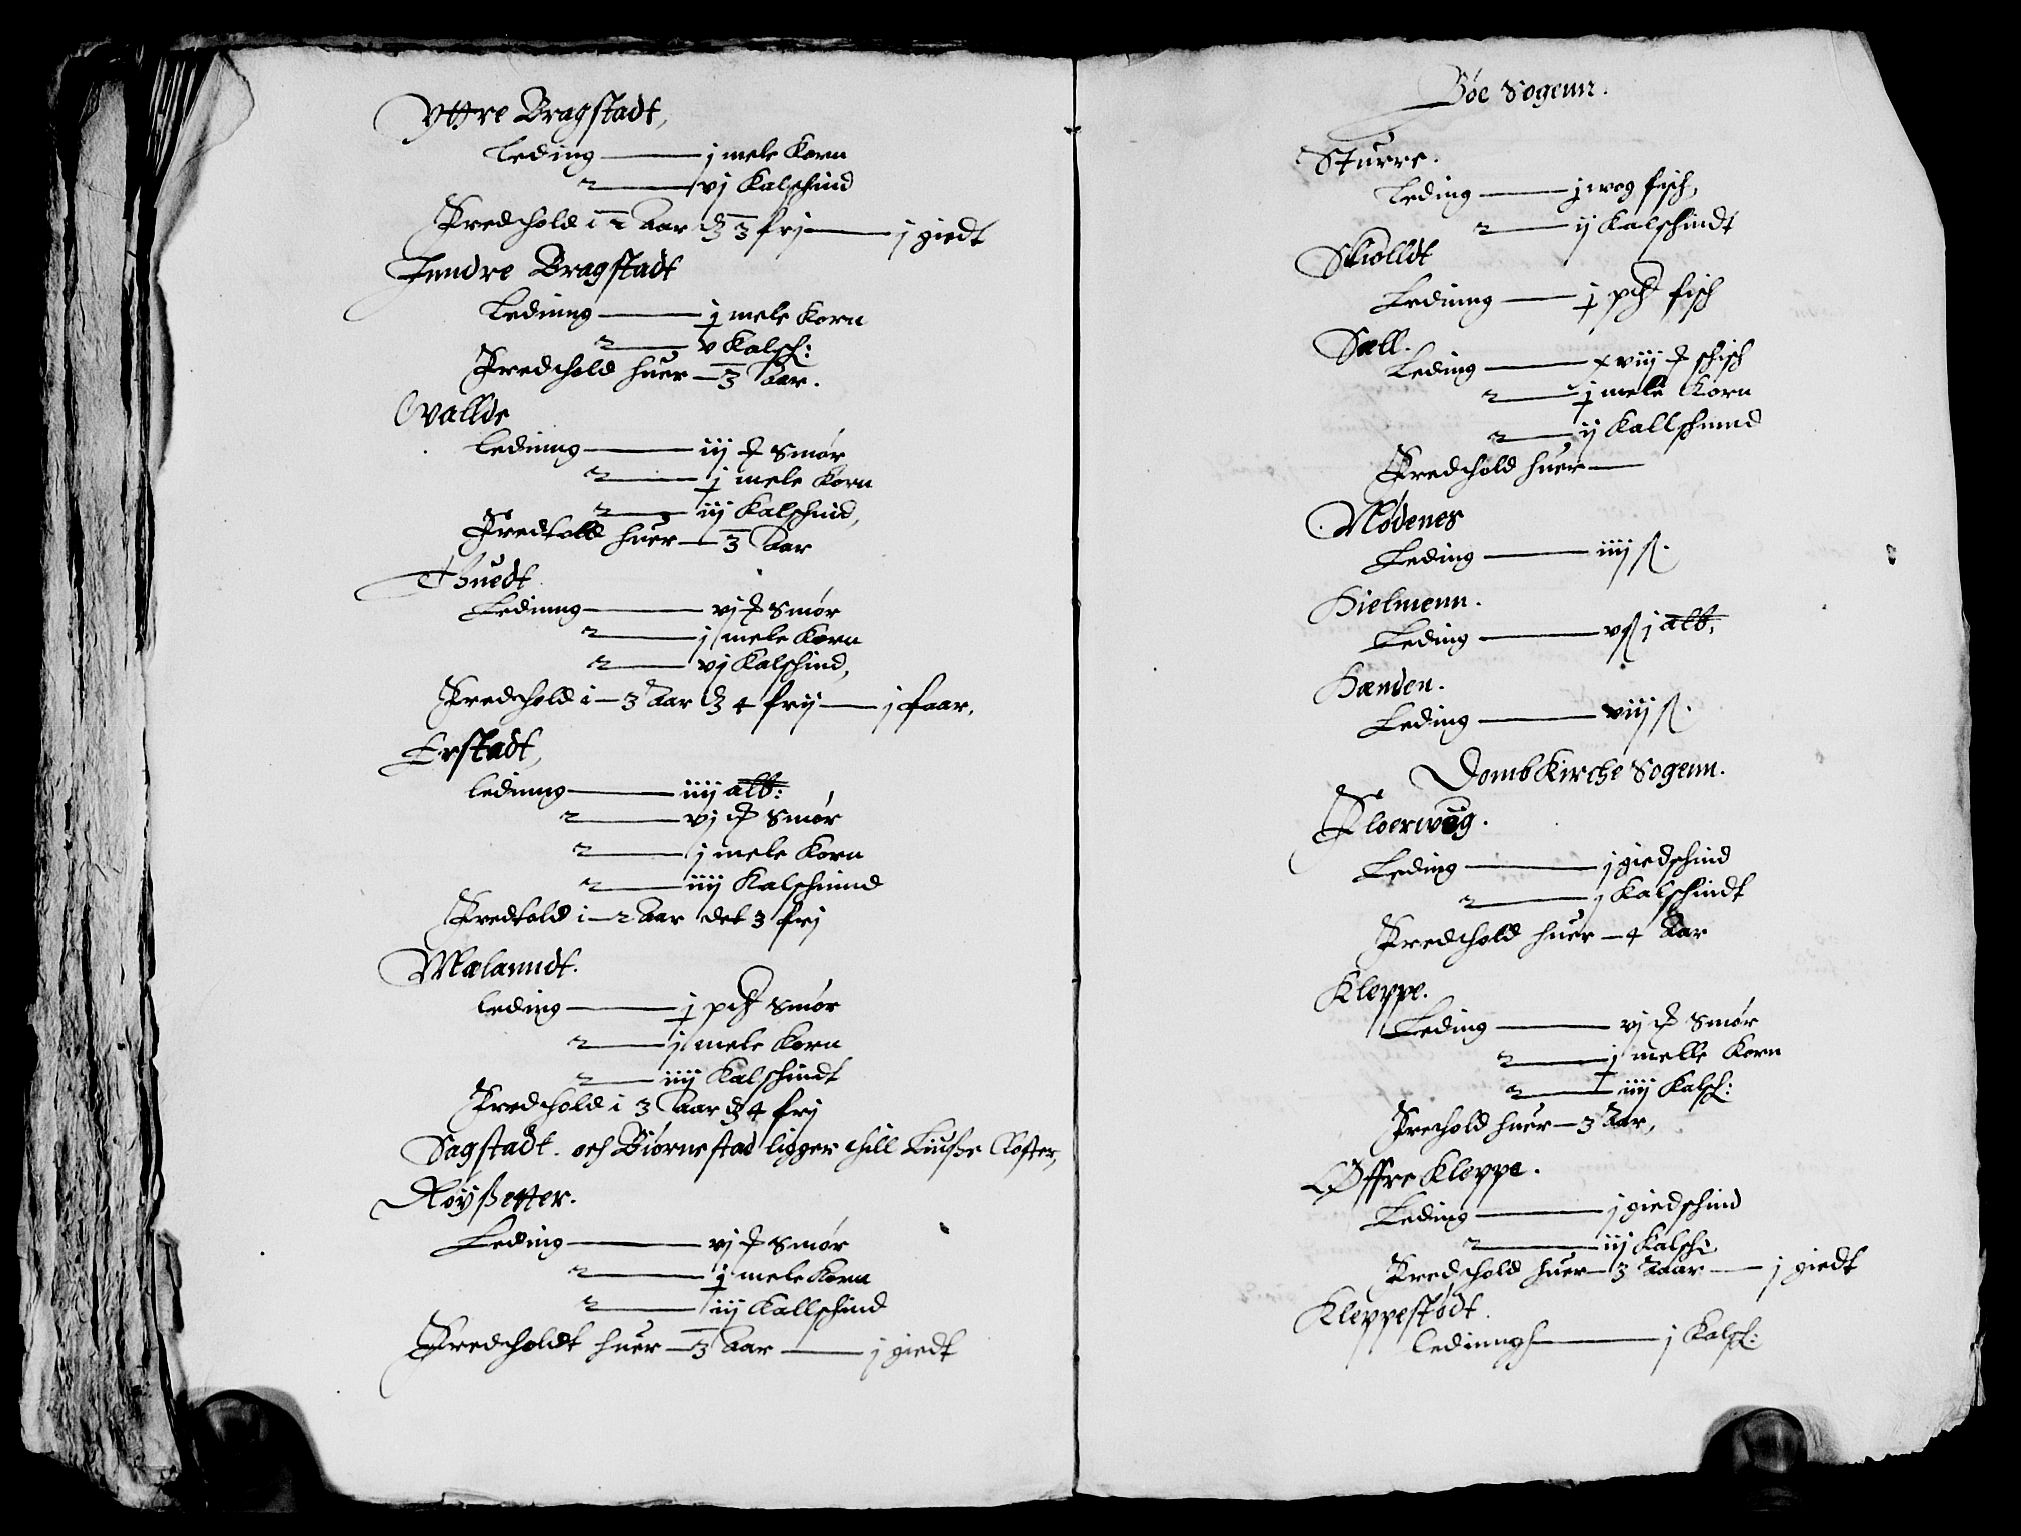 Yttre Bragstadt,
Leding — j mele Korn
2 — vj Kalschind
Fredhold i — 2 Aar d3 3 frj — j giedt
Jnndre Bragstadt
Ledinng — j mele Korn
2 — v Kalsch:
Fredhold huer — 3 Aar.
Ovallde
Ledinng — iij ℔ Smør
2 — j mele Korn
2 — iij Kalschind,
Fredtold huer — 3 Aar
Thuedt
Ledinng — vj ℔ Smør
2 — j mele Korn
2 — vj Kalschind,
Fredhold i — 3 Aar d3 4 frij — j faar,
Erstadt,
Ledinng — iiij alb:
2 — vj ℔ Smør
2 — j mele Korn
2 — iiij Kalschinnd
Fredtold i — 2 Aar det 3 frj
Mælanndt.
Leding — j pd Smør
2 — j mele Korn
2 — iiij Kalschindt
Fredhold i 3 Aar d3 4 frj
Sagstadt. och Biørnestad ligger thill Liusze Closter,
Røyßetter.
Leding — vj ℔ Smør
2 — j mele Korn
2 — iij Kallschind
Fredholdt huer — 3 Aar — j giedt
Bøe Sogenn.
Sturre.
Leding — j wog fisch,
2 — ij Kalschindt
Skiolldt
Ledinng — j pd fisch
Sæll.
Leding — xviij ℔ fisch
2 — j mele Korn
2 — ij Kallschinnd
Fredhold huer —
Mødenes
Leding — iiij ß.
Hielmenn.
Leding — v ß j alb:
Hænden.
Leding — viij ß.
Domb Kirche Sogenn.
Floerwog.
Leding — j giedschind
2 — j Kalschindt
Fredhold huer — 4 Aar
Kleppe.
Leding — vj ℔ Smør
2 — j melle Korn
2 — iiij Kalsch:
Frehold huer — 3 Aar,
Øffre Kleppe.
Leding — j giedschind
2 — iij Kalsch:
Fredhold huer — 3 Aaar — j giedt
Kleppestødt.
Ledinngh — j Kalsch: